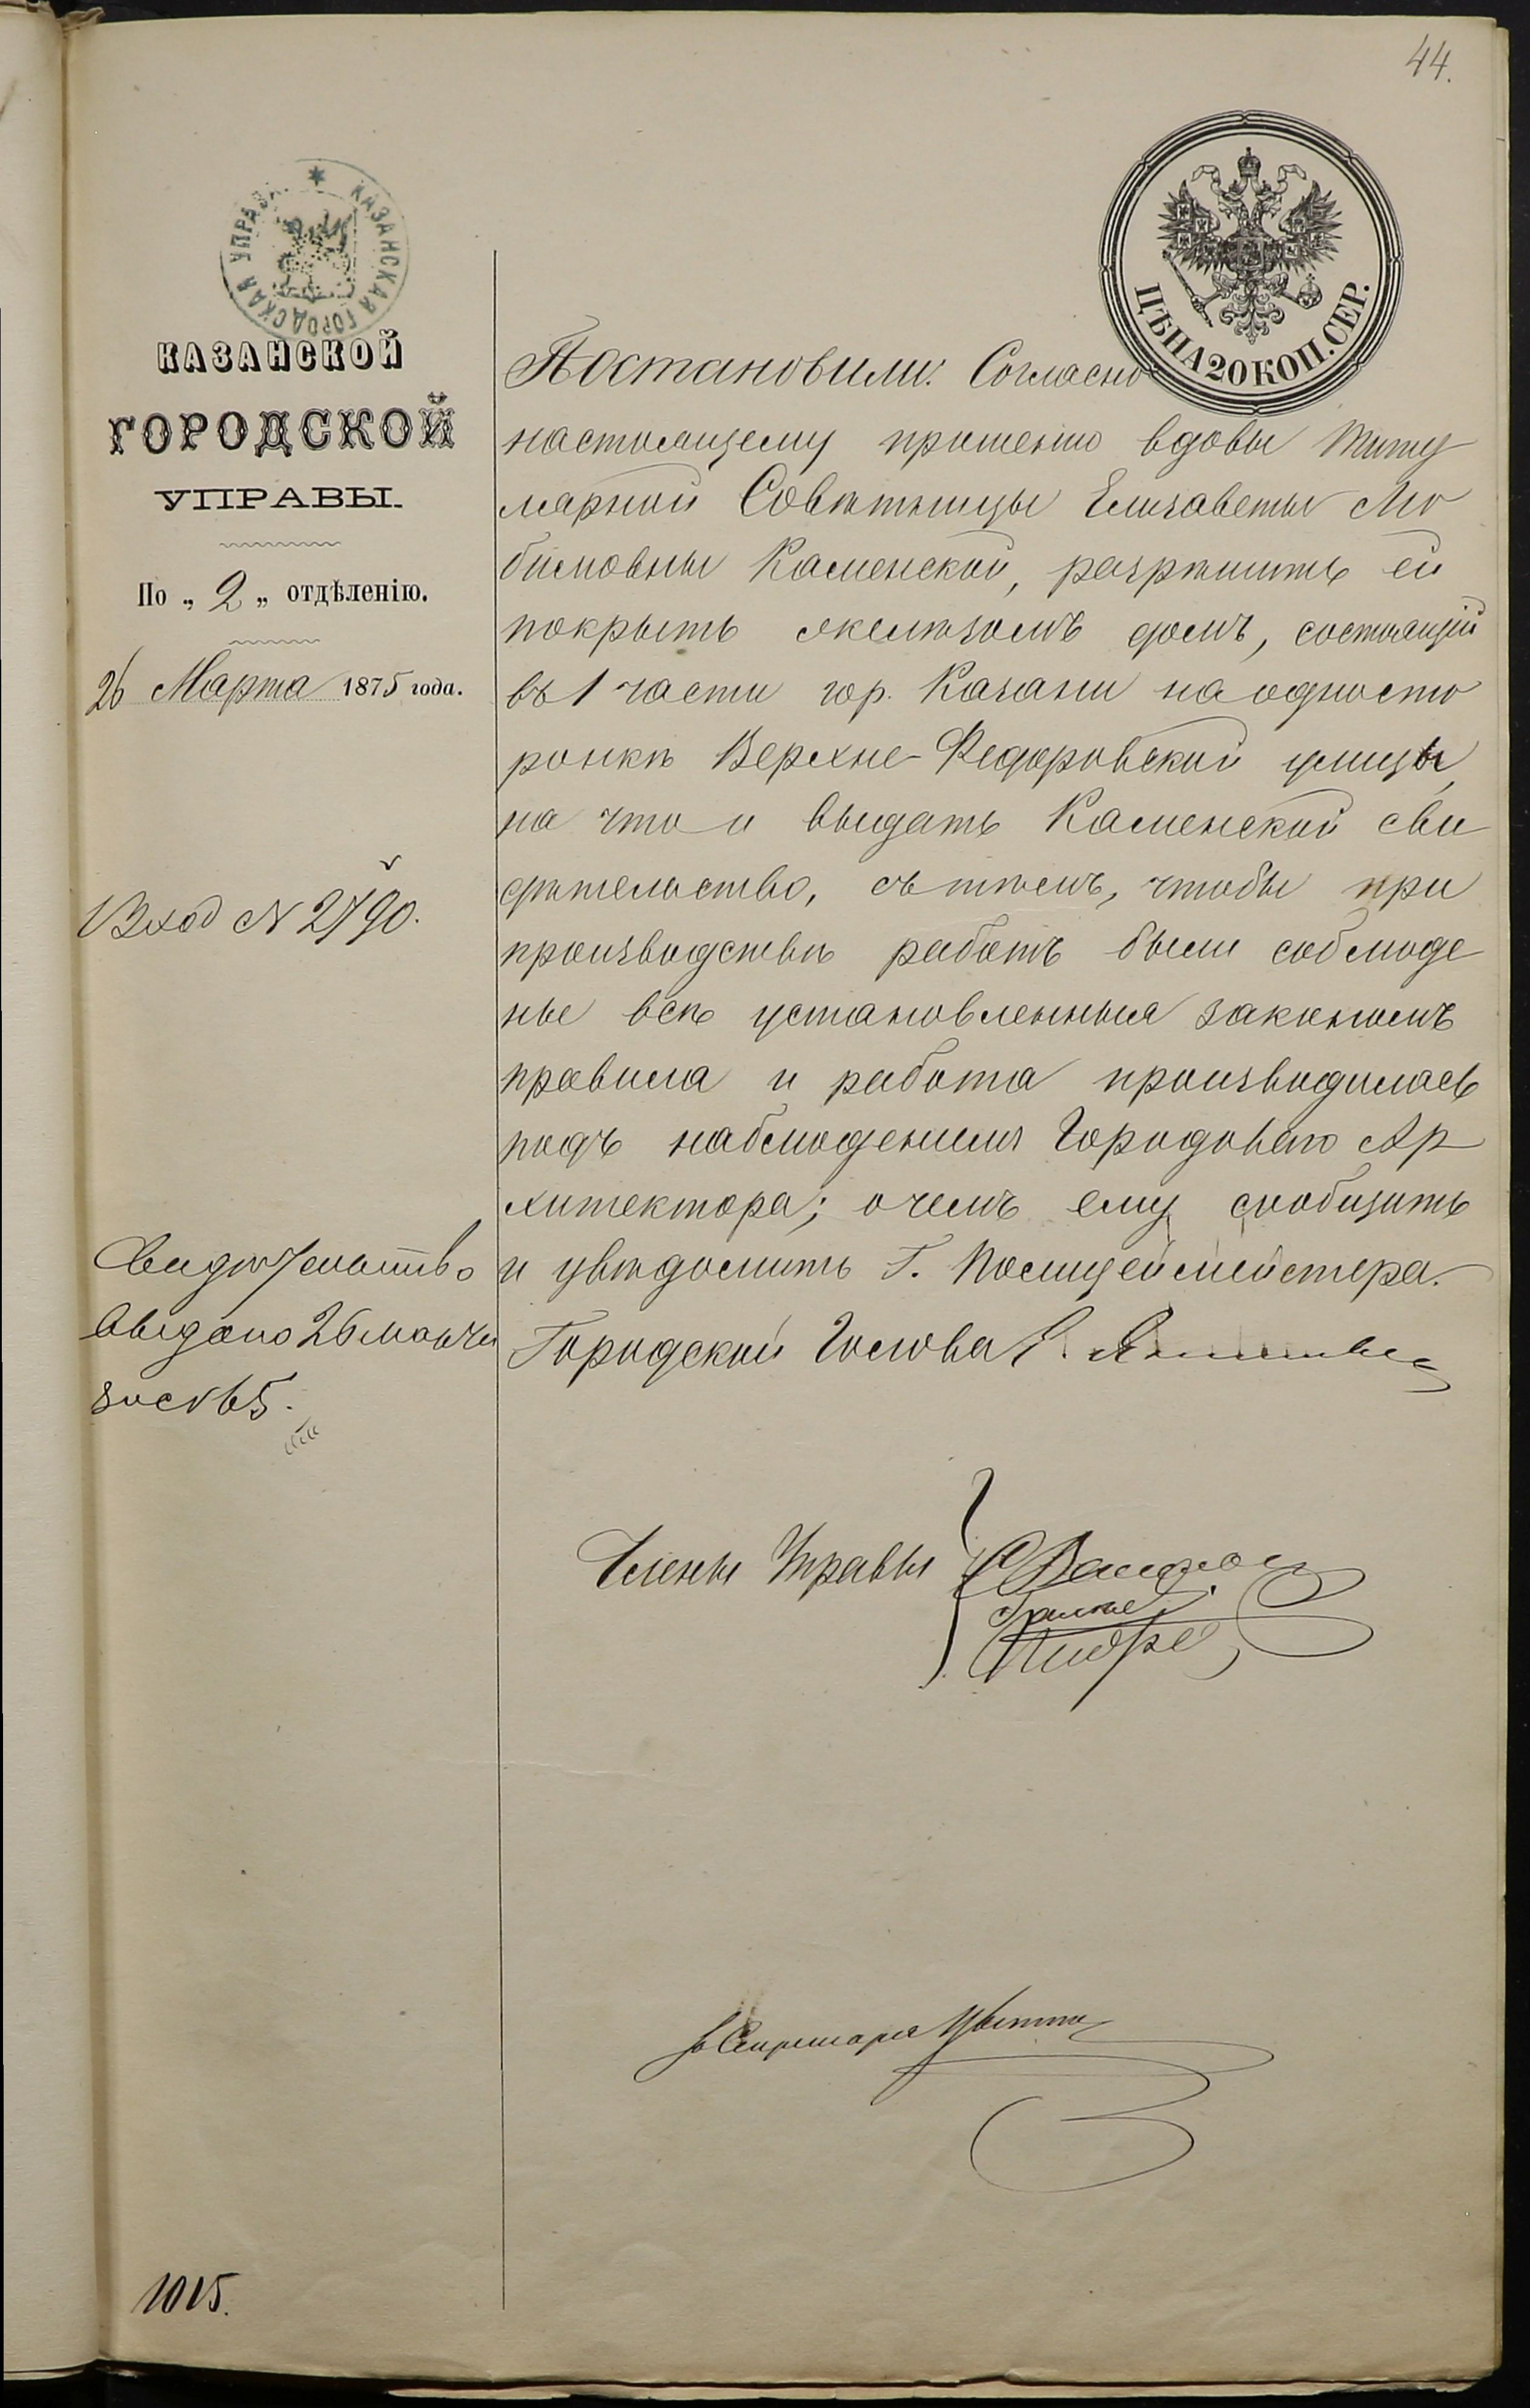 44.
КАЗАНСКАЯ ГОРОДСКАЯ УПРАВА
ЦѢНА 20 КОП. СЕР.
КАЗАНСКОЙ
ГОРОДСКОЙ
УПРАВЫ.
По „ 2 „ отдѣленію.
26 Марта 1875 года.
Вход № 2790.
Свидѣтельство
выдано 26 марта
за № 65.
1015.
Постановили: Согласно
настоящему прошенію вдовы Титу
лярной Совѣтницы Елизаветы
Каменской, разрѣшить ей
покрыть желѣзомъ домъ, состоящій
въ 1 части гор. Казани на односто
ронкѣ Верхне-Федоровской улицы,
на что и выдать Каменской сви
дѣтельство, съ тѣмъ, чтобы при
производствѣ работъ были соблюде
ны всѣ установленныя закономъ
правила и работа производилась
подъ наблюденіемъ Городоваго Ар
хитектора; о чемъ ему сообщить
и увѣдомить Г. Полицеймейстера.
Городской Голова
Члены Управы
Секретаря